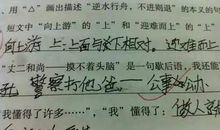 用“△”画出描述“逆水行舟，不进则退”的本义的句
短文中“向上游”的“上”和“迎难而上”的“上”
向上游 上：上面与下相对，迎难而上
“丈二和尚——摸不着头脑”是一句歇后语，我还能
警察抓他爸——公事公办
“我懂得了许多……”，“我”懂得了：做人